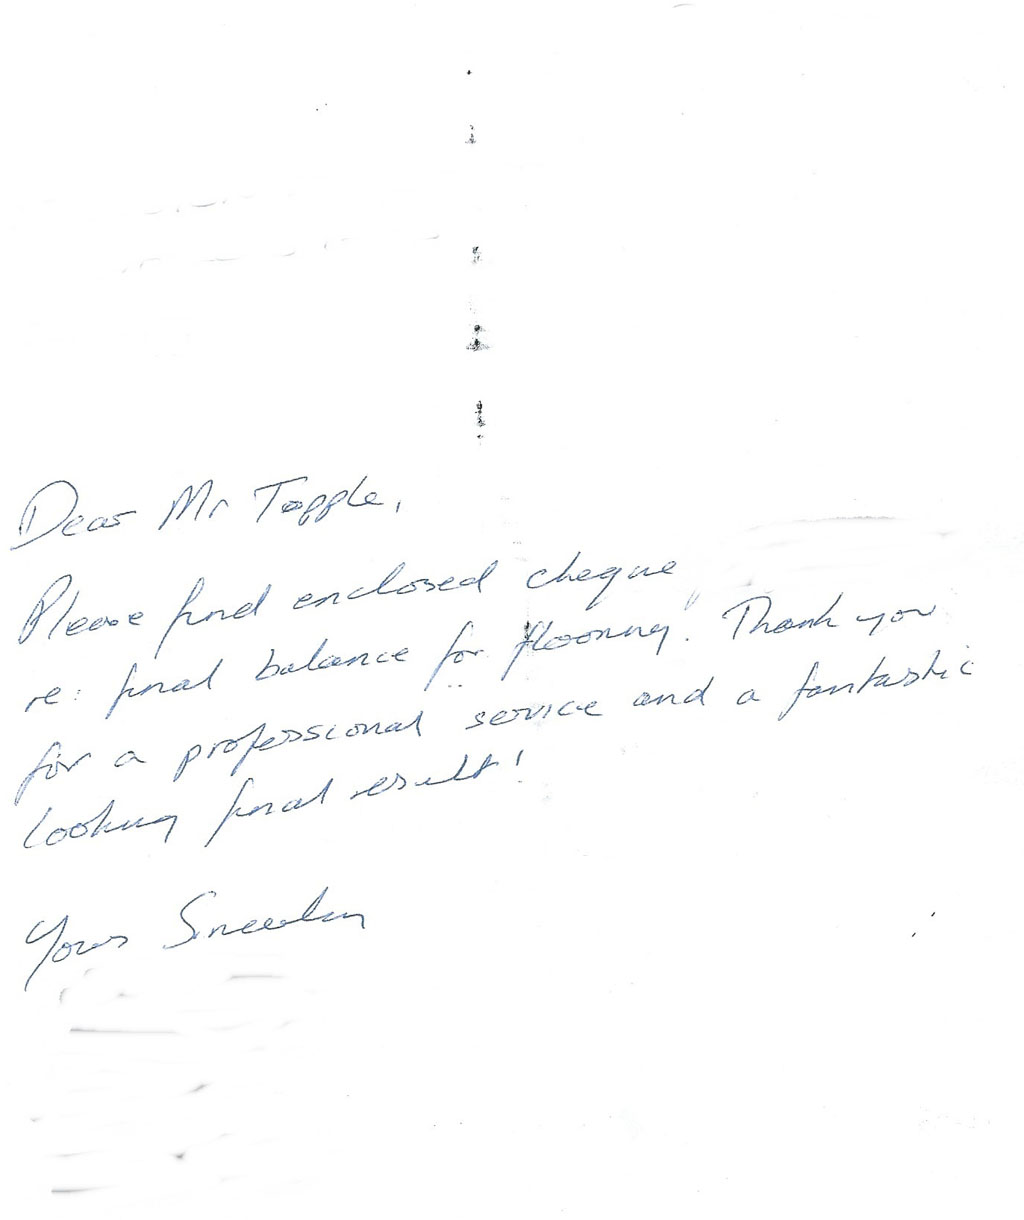 Dear Mr Topple,
Please find enclosed cheque
re: final balance for flooring. Thank you
for a professional service and a fantastic
looking final result!
Yours Sincerely